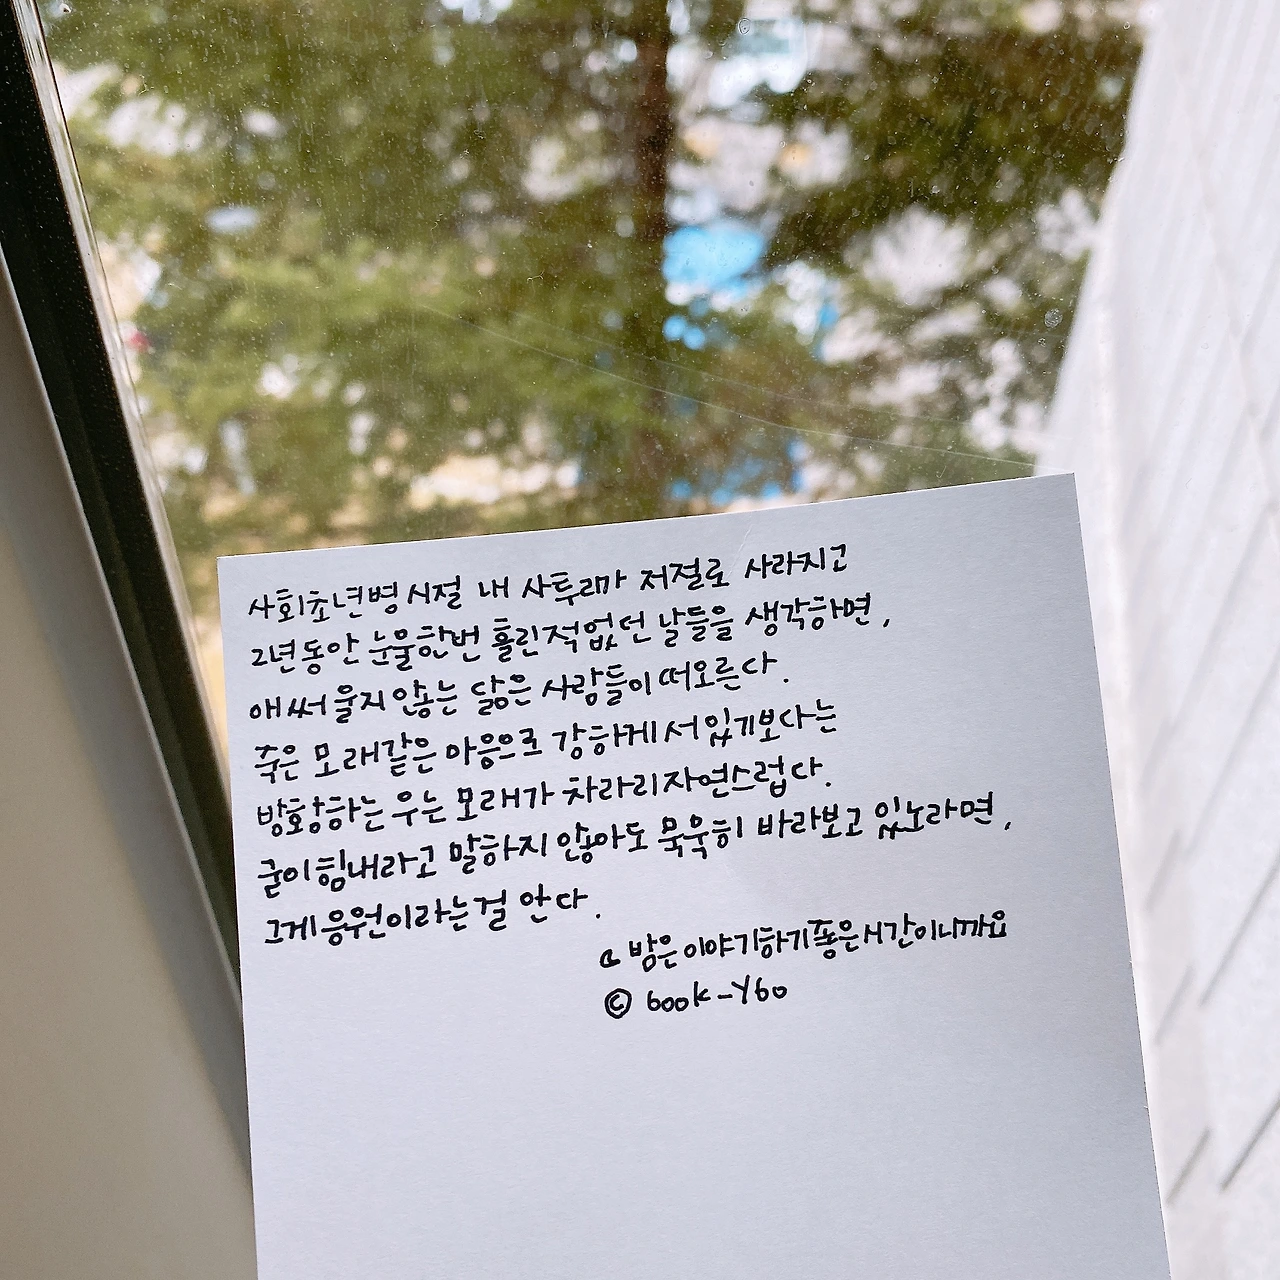 사회초년병 시절 내 사투리가 저절로 사라지고
2년동안 눈물한번 흘린적없던 날들을 생각하면,
애써 울지 않는 닮은 사람들이 떠오른다.
죽은 모래같은 마음으로 강하게 서있기보다는
방황하는 우는 모래가 차라리 자연스럽다.
굳이 힘내라고 말하지 않아도 묵묵히 바라보고 있노라면,
그게 응원이라는 걸 안다.
밤은 이야기하기 좋은 시간이니까요
© book_ybo